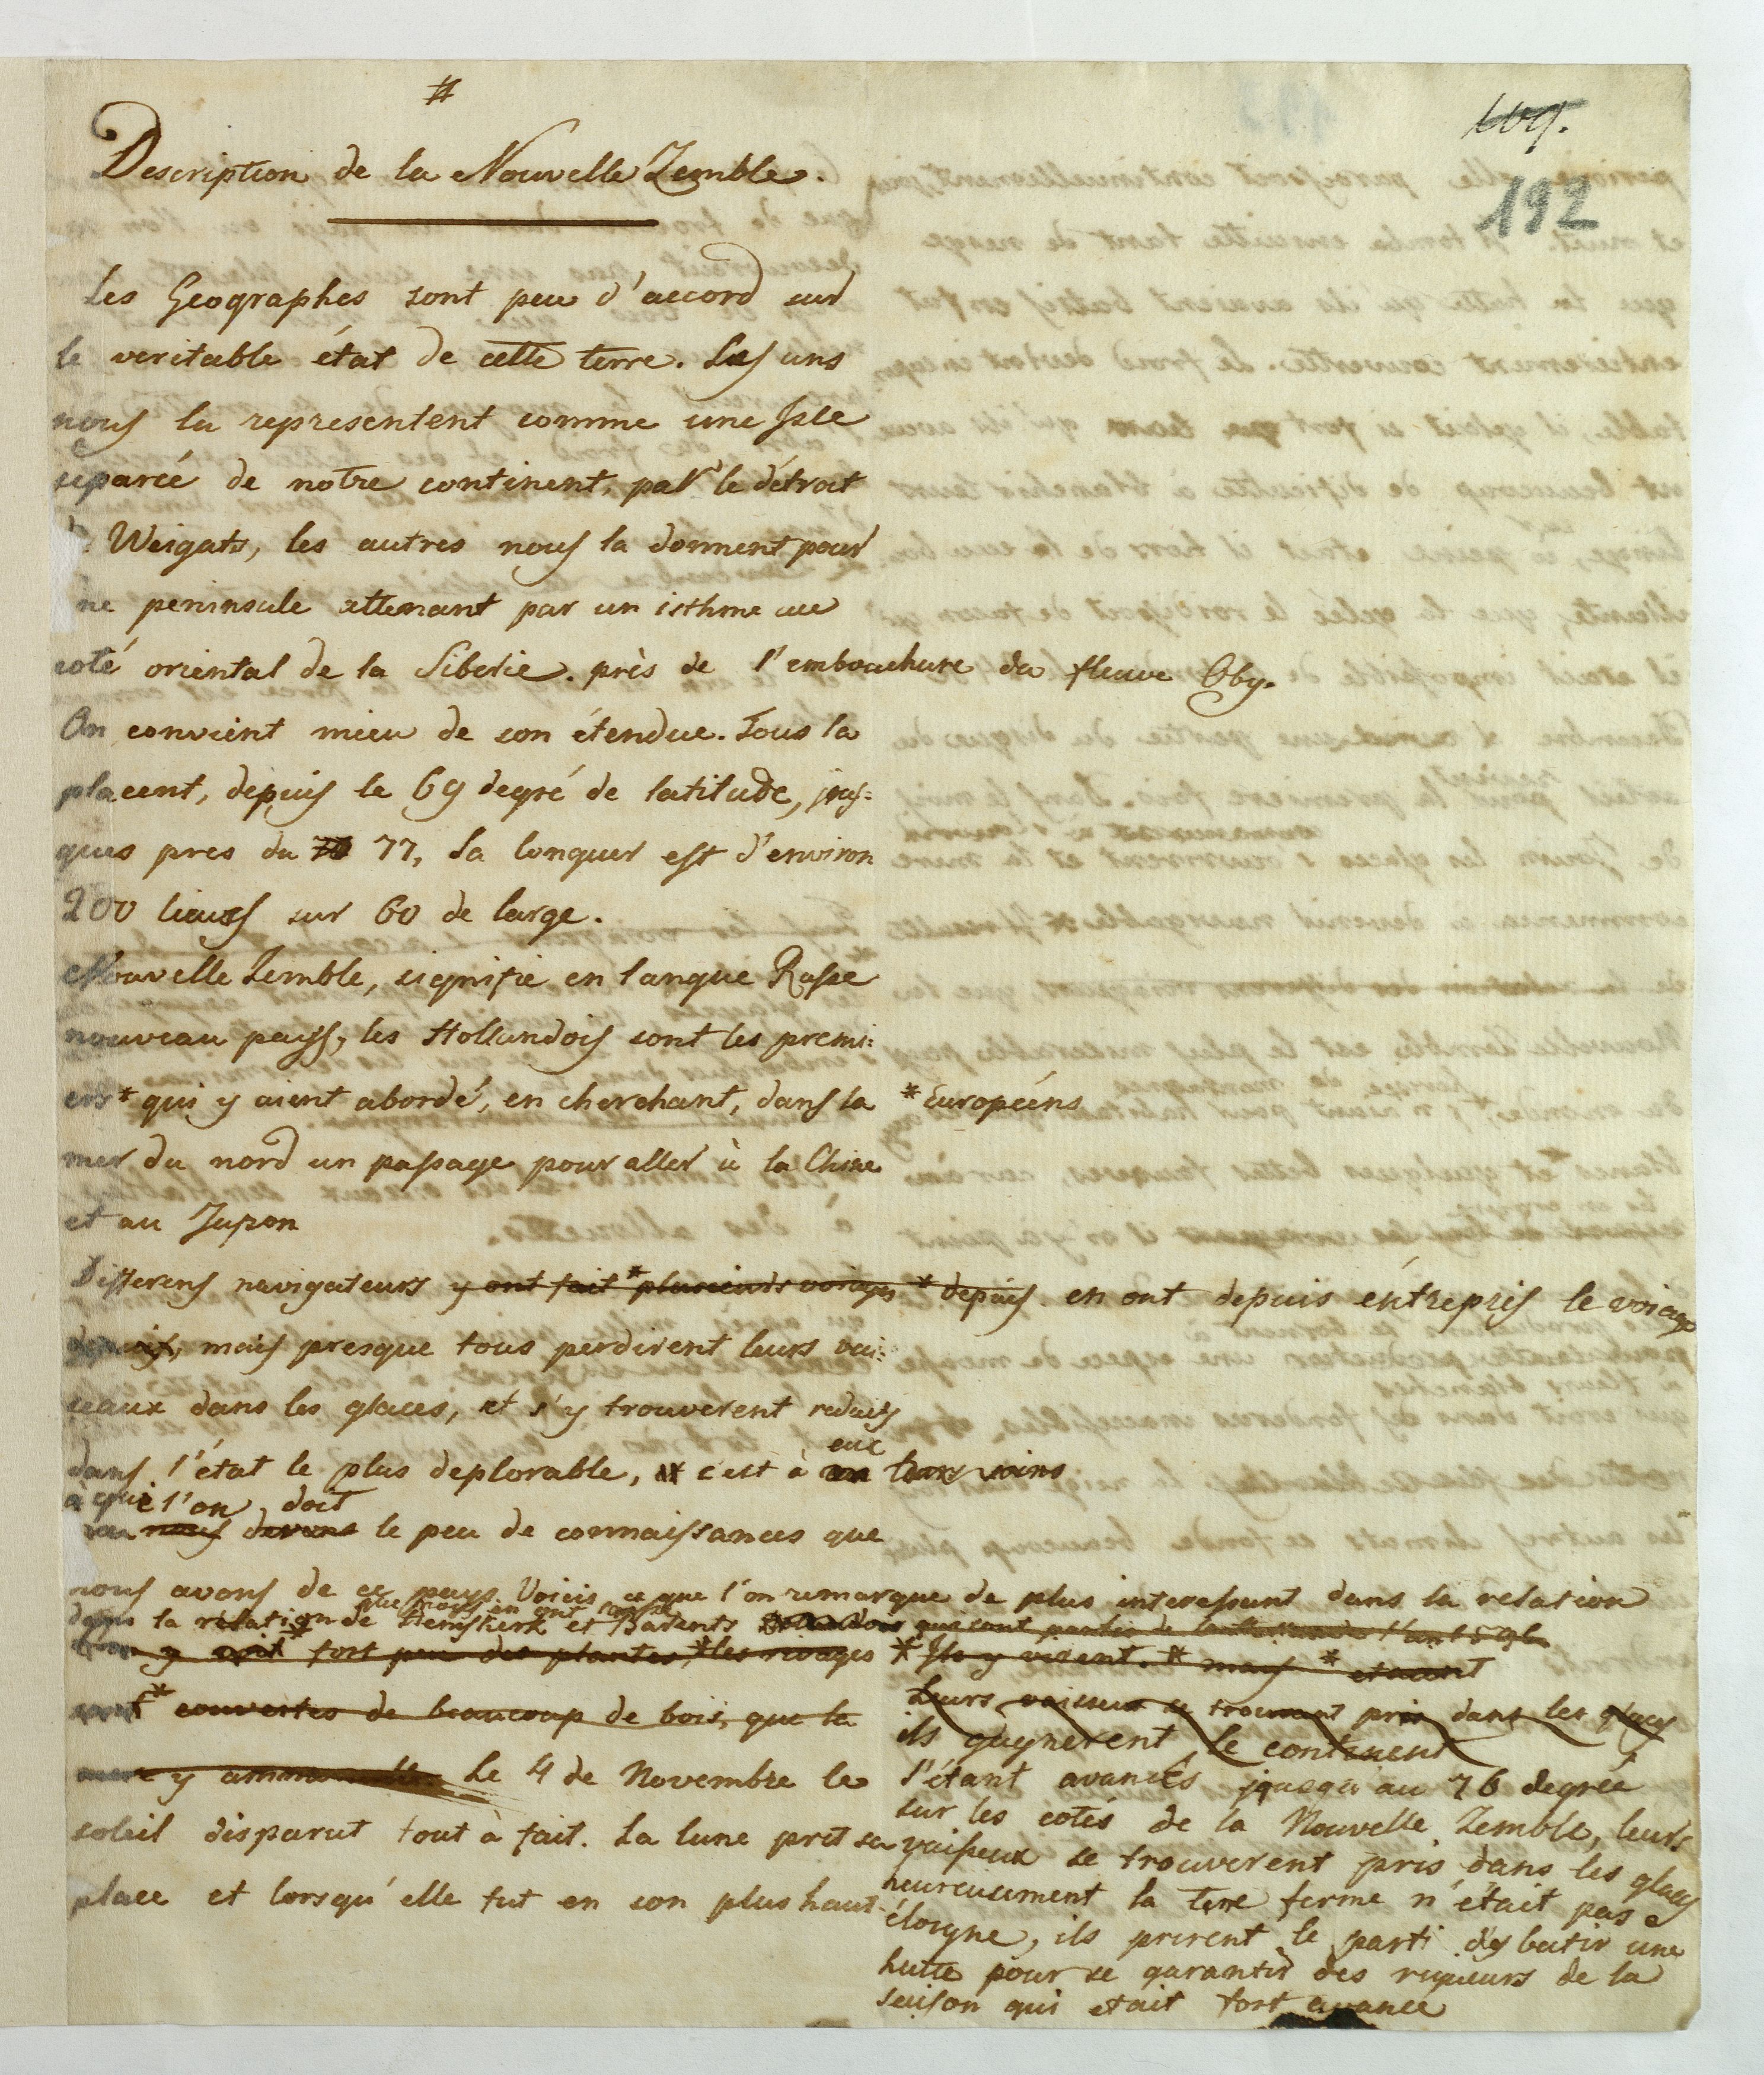 #
192
Description de la Nouvelle Zemble.
Les Geographes sont peu d'accord sur
le veritable état de cette terre. Les uns
nous la representent comme une Isle
separée de notre continent, par le détroit
Weigats, les autres nous la donnent pour
ne peninsule attenant par un isthme au
coté oriental de la Siberie. près de l'embouchure du fleuve Oby.
On convient mieu de son étendue. Tous la
placent, depuis le 69 degré de latitude, jus=
ques pres du 77, Sa longuer est d'environ
200 lieues sur 60 de large.
Nouvelle Zemble, signifie en langue Russe
nouveau pays; les Hollandois sont les premi=
ers* qui y aient abordé, en cherchant, dans la
* Européens
mer du nord un passage pour aller à la Chine
et au Japon
Differens navigateurs y ont fait * plusieurs voiages * depuis en ont depuis éntrepris le voiage
depuis, mais presque tous perdirent leurs vai=
seaux dans les glaces, et s'y trouverent reduits
dans l'état le plus deplorable, et c'est à eux leurs soins
à qui l'on doit
nous devons le peu de connaissances que
nous avons de ce pays. Voicis ce que l'on remarque de plus interessant dans la relation
dans la relation de Hemskerk et Barents qui sont partis de l'an
y voit * fort peu des plantes, * les rivages * Ils y virent. * mais * etaient
sont * couvertes de beaucoup de bois, que la
mer y Le 4 de Novembre le
soleil disparut tout à fait. La lune prit sa
place et lorsqu'elle fut en son plus haut
Leurs vaisseux se trouvant pris dans les glaces
ils gagnerent le continent
s'étant avancés jusqu'au 76 degrée
sur les cotés de la Nouvelle Zemble, leurs
vaisseux se trouverent pris dans les glaces
heureusement la terre ferme n'était pas
éloigne, ils prirent le parti d'y batir une
hutte pour se garantir des rigueurs de la
saison qui etait fort avancé